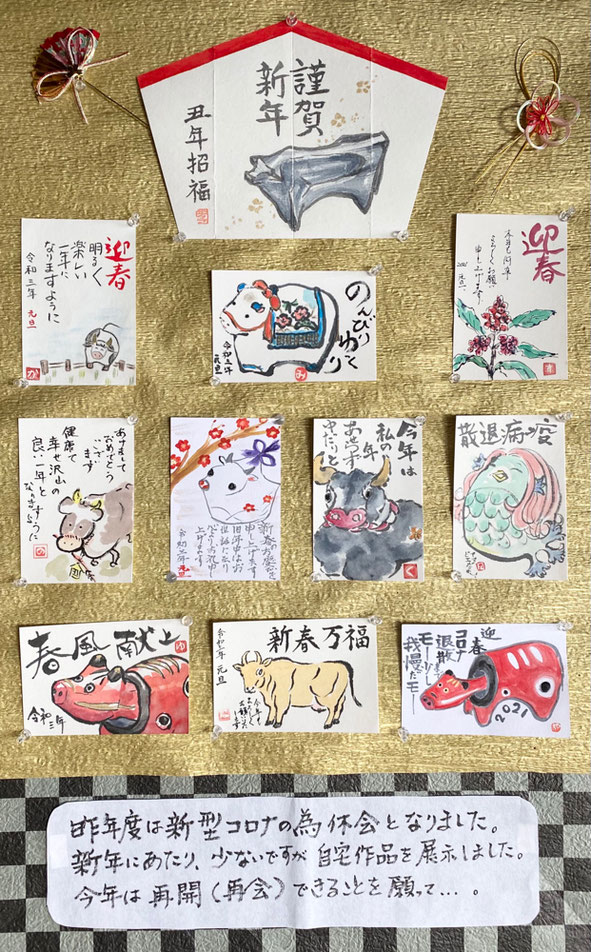 謹賀
新年
丑年招福
迎春
明るく
楽しい
一年に
なりますように
令和三年 元旦
のんびり
ゆっくり
令和三年
元旦
迎春
本年も何卒
よろしくお願い
申し上げます
2021 元旦
あけまして
おめでとう
ございます
健康で
幸せ沢山の
良い一年と
なりますように
新春のお慶びを
申し上げます
旧年中はお
世話になり
心よりお礼申
上げます
令和三年 元旦
今年は
私の年
あせらず
ゆったりと
疫病退散
春風献上
令和三年
新春万福
令和三年 元旦
迎春
退散
モーリモーリ
我慢だモー
2021
昨年度は新型コロナの為休会となりました。
新年にあたり、少ないですが自宅作品を展示しました。
今年は再開(再会)できることを願って…。